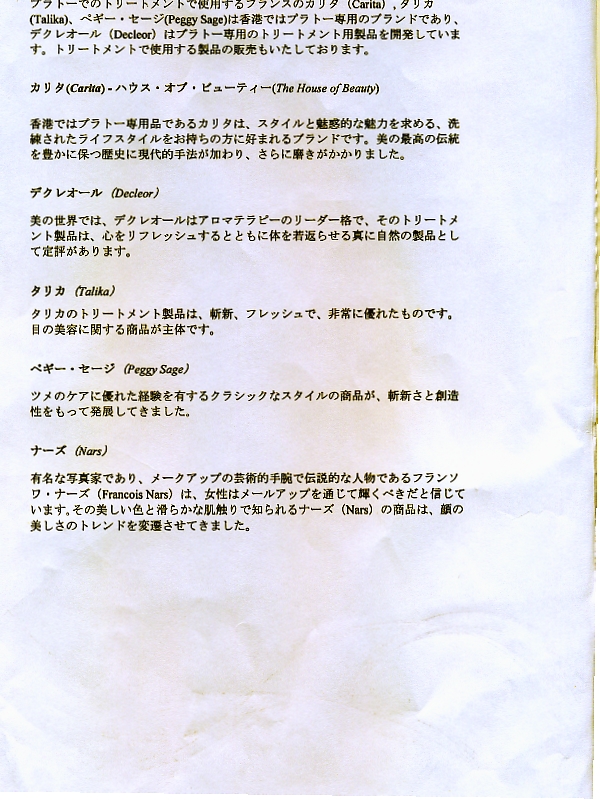 プラトーでのトリートメントで使用するフランスのカリタ（Carita）, タリカ
(Talika)、ペギー・セージ(Peggy Sage)は香港ではプラトー専用のブランドであり、
デクレオール（Decleor）はプラトー専用のトリートメント用製品を開発していま
す。トリートメントで使用する製品の販売もいたしております。
カリタ(Carita) - ハウス・オブ・ビューティー(The House of Beauty)
香港ではプラトー専用品であるカリタは、スタイルと魅惑的な魅力を求める、洗
練されたライフスタイルをお持ちの方に好まれるブランドです。美の最高の伝統
を豊かに保つ歴史に現代的手法が加わり、さらに磨きがかかりました。
デクレオール （Decleor）
美の世界では、デクレオールはアロマテラピーのリーダー格で、そのトリートメ
ント製品は、心をリフレッシュするとともに体を若返らせる真に自然の製品とし
て定評があります。
タリカ （Talika）
タリカのトリートメント製品は、斬新、フレッシュで、非常に優れたものです。
目の美容に関する商品が主体です。
ペギー・セージ （Peggy Sage）
ツメのケアに優れた経験を有するクラシックなスタイルの商品が、斬新さと創造
性をもって発展してきました。
ナーズ （Nars）
有名な写真家であり、メークアップの芸術的手腕で伝説的な人物であるフランソ
ワ・ナーズ（Francois Nars）は、女性はメールアップを通じて輝くべきだと信じて
います。その美しい色と滑らかな肌触りで知られるナーズ（Nars）の商品は、顔の
美しさのトレンドを変遷させてきました。